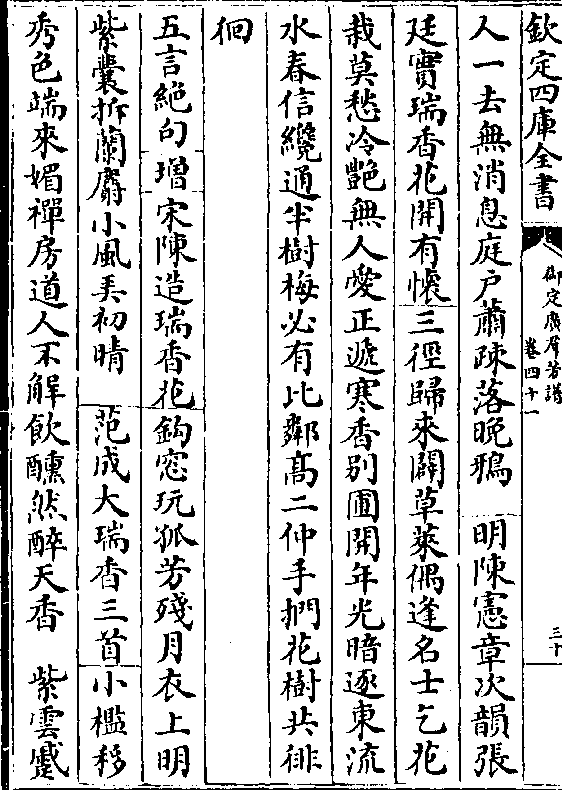 欽定四庫全書
御定廣羣芳譜
卷四十一
三十
人一去無消息庭户蕭疎落晚鴉 明陳憲章次韻張
廷實瑞香花開有懷三徑歸來闢草萊偶逢名士乞花
栽莫愁冷艷無人愛正遞寒香别圃開年光暗逐東流
水春信纔通半樹梅必有比鄰髙二仲手捫花樹共徘
徊
五言絶句增宋陳造瑞香花鈎窓玩孤芳殘月衣上明
紫囊拆蘭麝小風美初晴 范成大瑞香三首小檻移
秀色端來媚禪房道人不解飲醺然醉天香 紫雲蹙